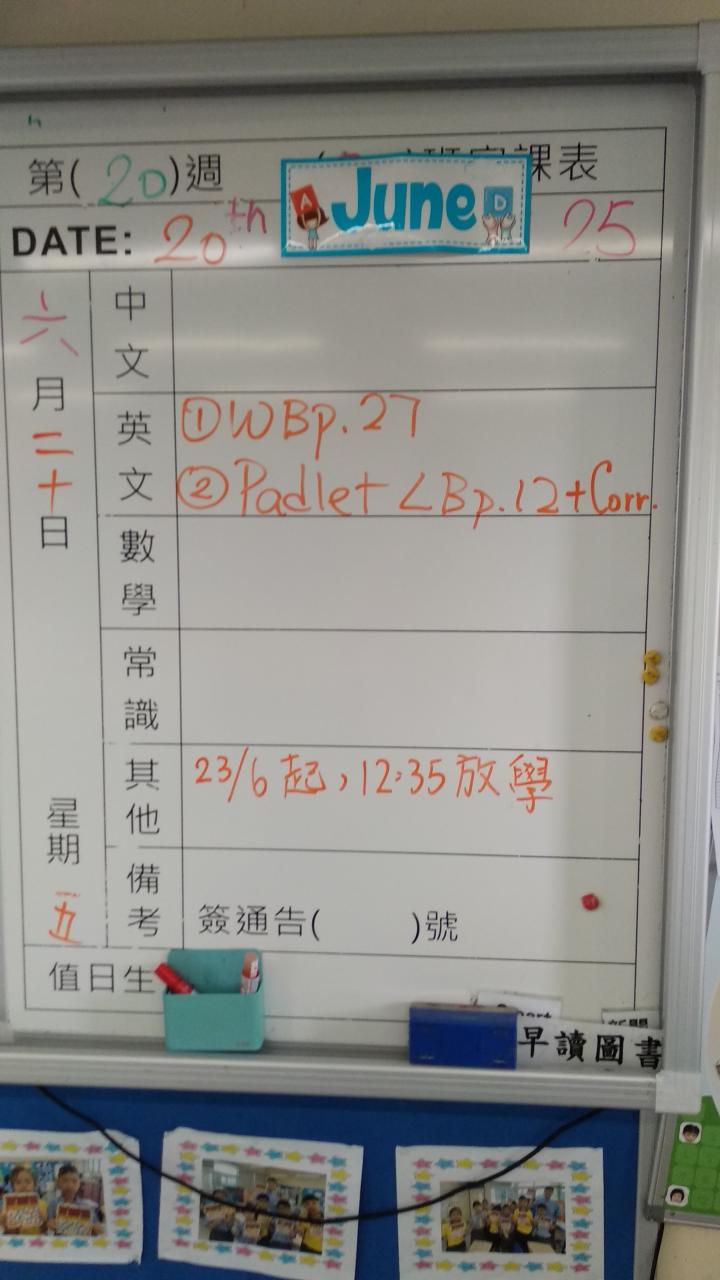 第(20)週 課表
DATE: 20th June 25
A D
六月二十日
星期五
中文
英文
①WBp.27
②Padlet LBp.12+Corr.
數學
常識
其他
23/6起，12:35放學
備考
簽通告( )號
值日生
早讀圖書